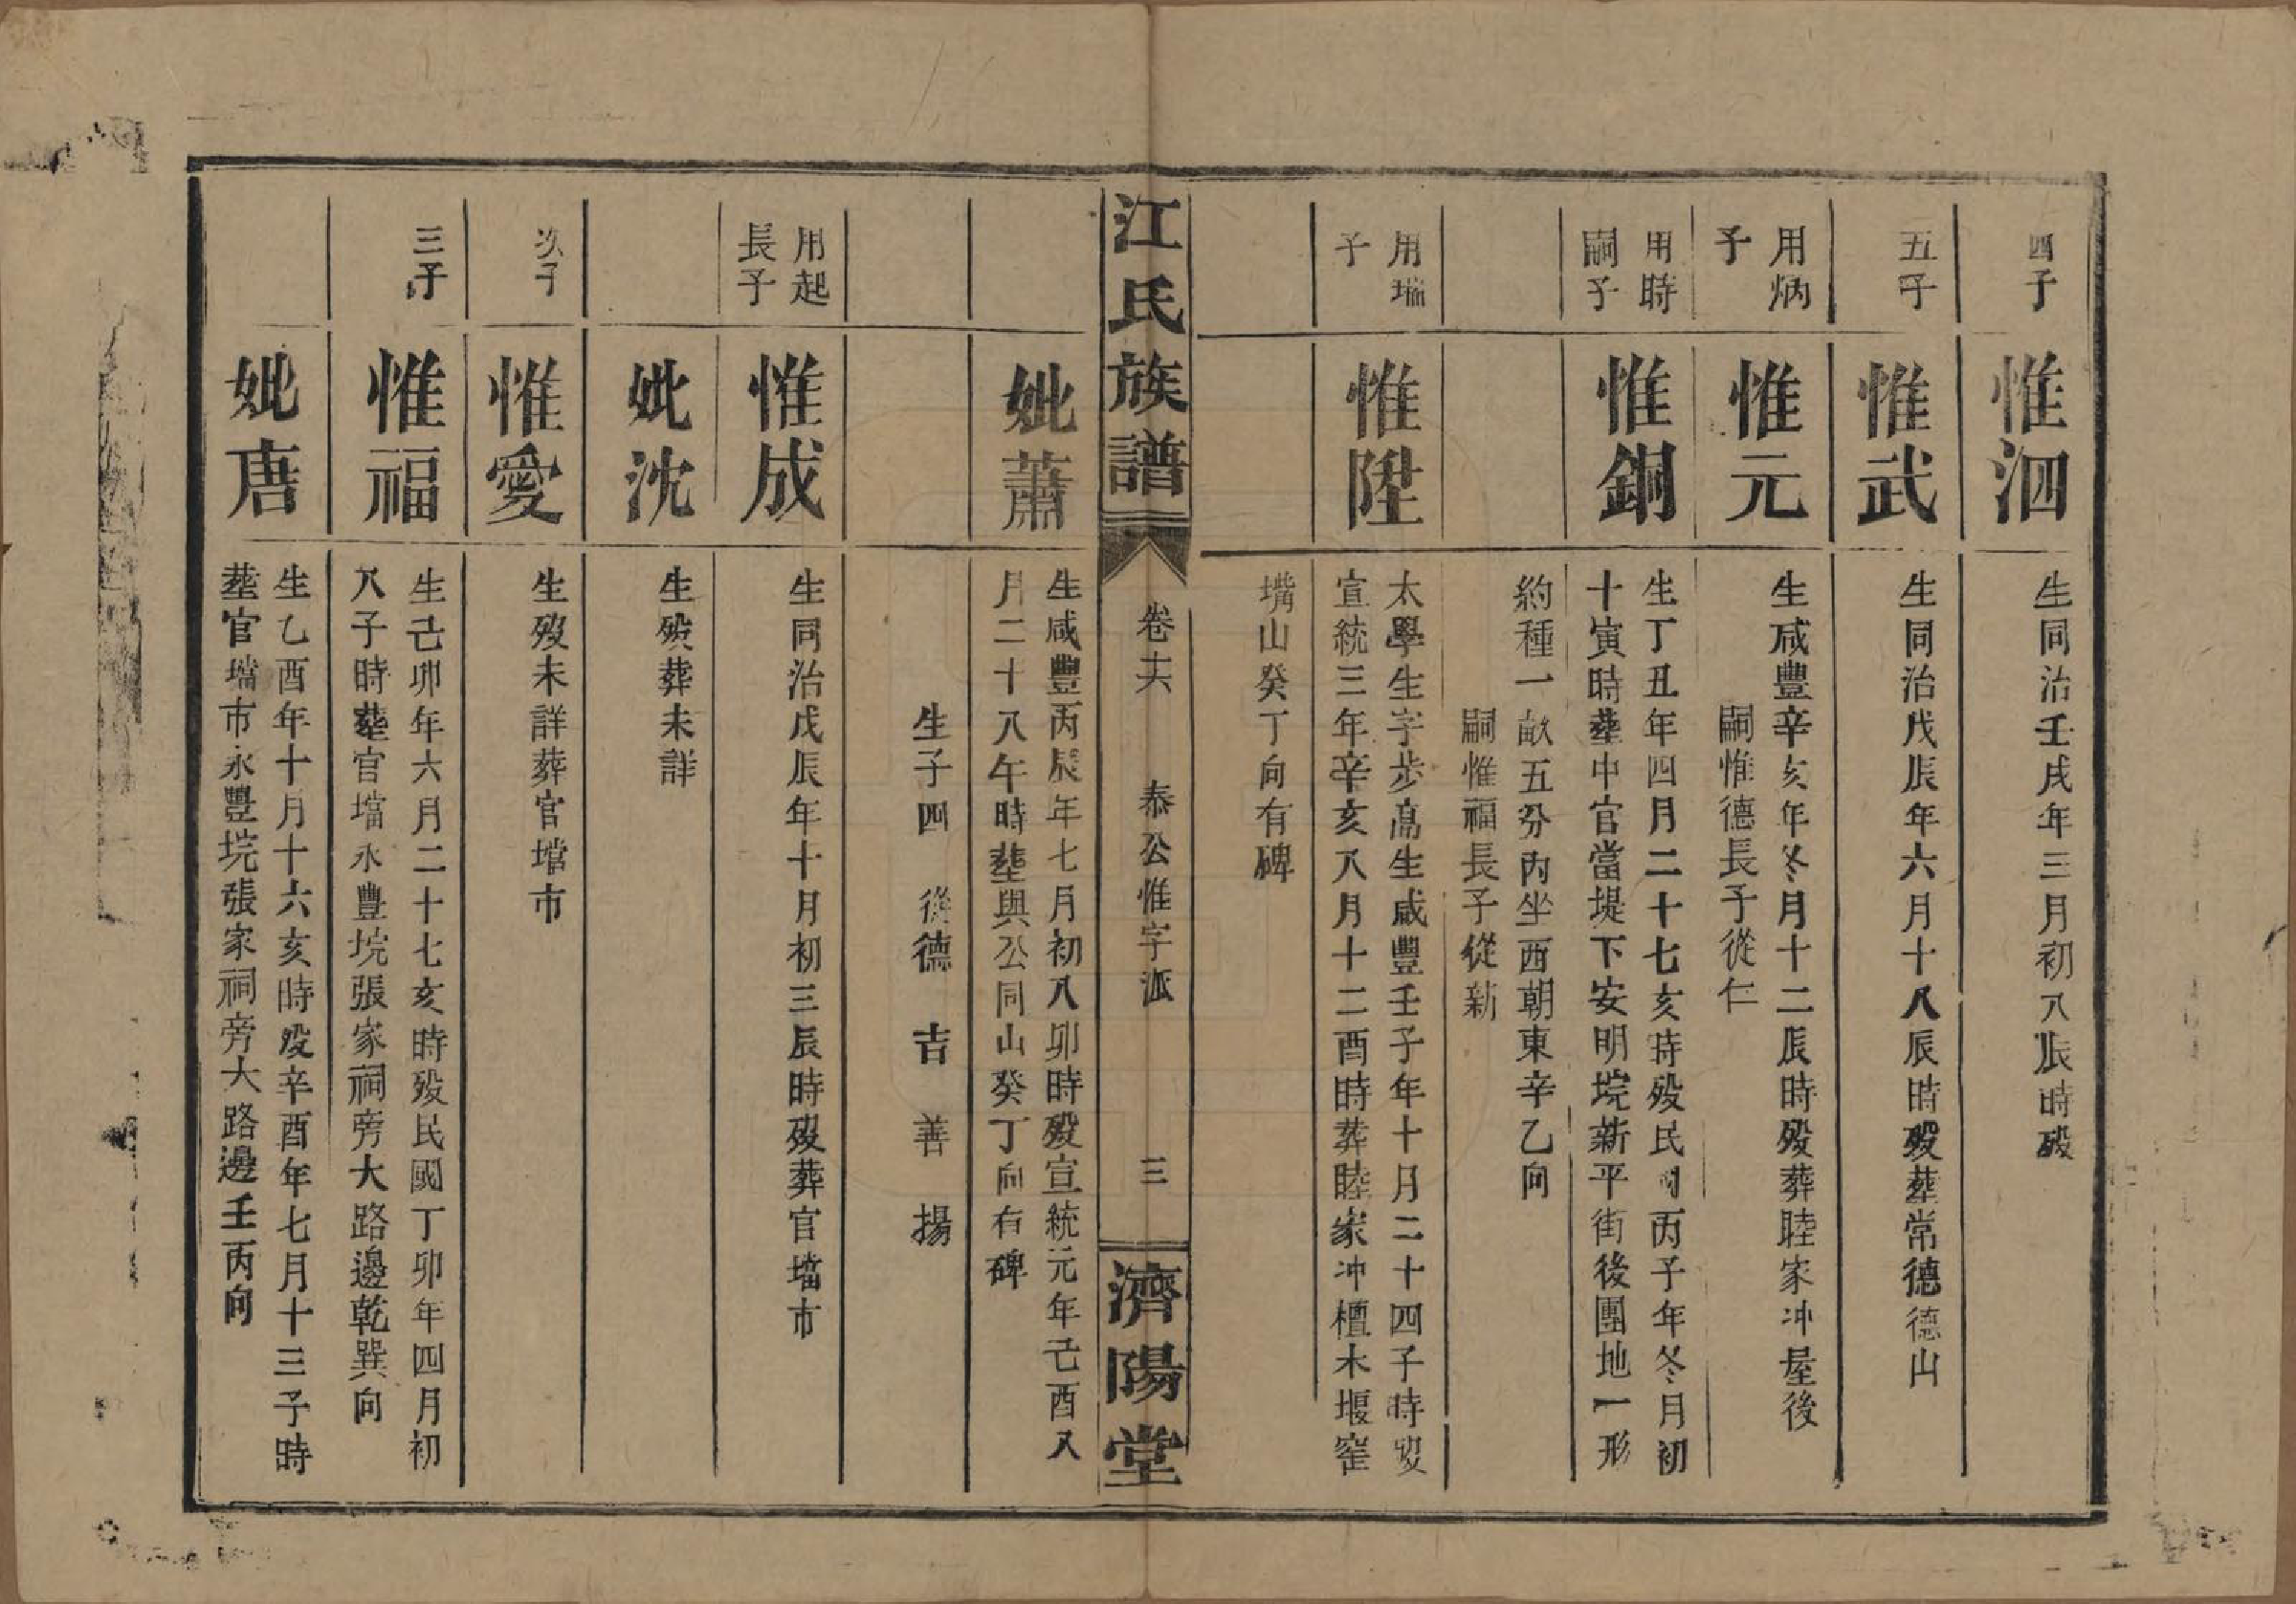 四子
惟泗
生同治壬戌年三月初八辰時歿
五子
惟武
生同治戊辰年六月十八辰時歿葬常德德山
用炳
子
惟元
生咸豐辛亥年冬月十二辰時歿葬睦家冲屋後
嗣惟德長子從仁
用時
嗣子
惟銅
生丁丑年四月二十七亥時歿民國丙子年冬月初
十寅時塟中官當堤下安明垸新平街後團地一形
約種一畝五分內坐西朝東辛乙向
嗣惟福長子從新
用瑞
子
惟陞
太學生字步高生咸豐壬子年十月二十四子時歿
宣統三年辛亥八月十二酉時葬睦家冲檀木堰窑
塆山癸丁向有碑
江氏族譜
卷六
泰公惟字派
三
濟陽堂
妣蕭
生咸豐丙辰年七月初八卯時歿宣統元年己酉又
月二十八午時塟與公同山癸丁向有碑
生子四 從德 吉 善 揚
用起
長子
惟成
生同治戊辰年十月初三辰時歿葬官壋市
妣沈
生歿葬未詳
次子
惟愛
生歿未詳葬官壋市
三子
惟福
生己卯年六月二十七亥時歿民國丁卯年四月初
八子時塟官壋永豐垸張家祠旁大路邊乾巽向
妣唐
生乙酉年十月十六亥時歿辛酉年七月十三子時
塟官壋市永豐垸張家祠旁大路邊壬丙向